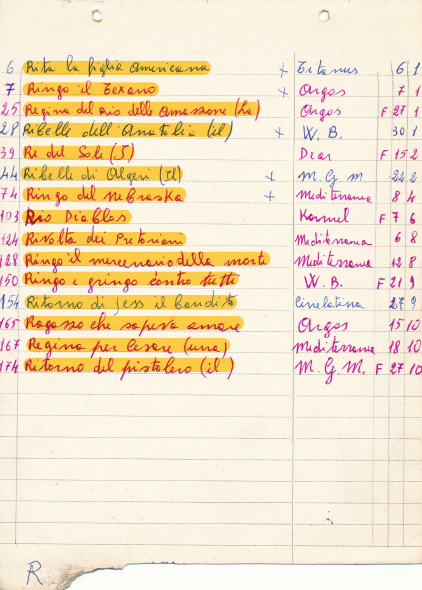 6 Rita la figlia americana x Titanus 6 1
7 Ringo il Texano x Argos 7 1
25 Regina del rio delle amazzone (La) Argos F 27 1
28 Ribelle dell'Anatolia (il) x W. B. 30 1
39 Re del Sole (I) Dear F 15 2
44 Ribelle di Algeri (Il) x M. G. M 22 2
74 Ringo del Nebraska x Mediterranea 8 4
103 Rio Diablos Kormel F 7 6
124 Rivolta dei Pretoriani Mediterranea 6 8
128 Ringo il mercenario della morte Mediterranea 12 8
150 Ringo e gringo contro tutti W. B. F 21 9
154 Ritorno di Jess il bandito Cinelatina 27 9
165 Ragazzo che sapeva amare Argos 15 10
167 Regina per Cesare (una) Mediterranea 18 10
174 Ritorno del pistolero (il) M. G. M. F 27 10
R